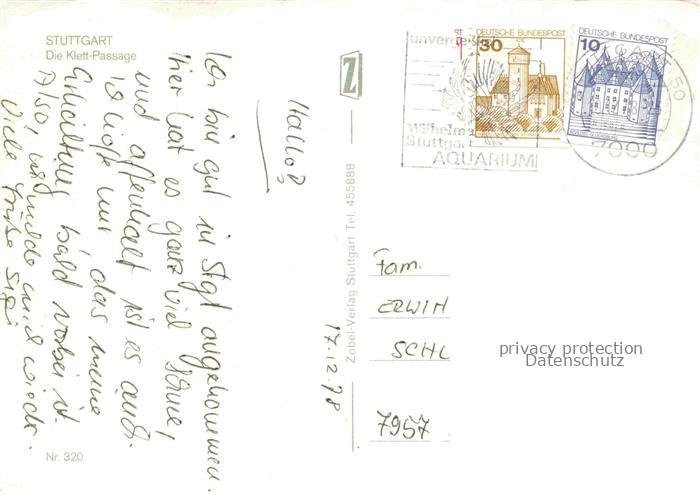 STUTTGART
Die Klett-Passage
Hallo!
Ich bin gut in Stgt angekommen.
hier hat es ganz viel Schnee,
und affenkalt ist es auch.
Ich hoffe nur, das meine
Erkältung bald vorbei ist.
Also, ich melde mich wieder.
Viele Grüße Sigi
17.12.78
Nr. 320
Zobel-Verlag Stuttgart Tel. 455888
Z
unvergeßl
Wilhelma
Stuttgart
AQUARIUM
30
DEUTSCHE BUNDESPOST
10
DEUTSCHE BUNDESPOST
7000
50
Fam.
ERWIN
SCHL
7957
privacy protection
Datenschutz